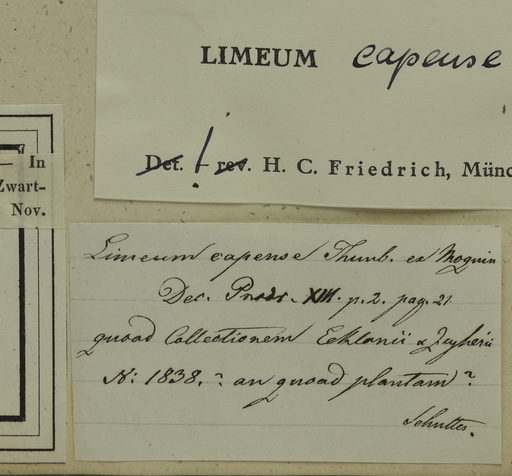 LIMEUM capense
Det. ! rev. H. C. Friedrich, Münc
— In
Zwart-
Nov.
Limeum capense Thunb. ex Moquin
Dec. Prodr. XIII. p. 2. pag. 21
quoad Collectionem Ecklonii & Zeyherii
N: 1838. ? an quoad plantam?